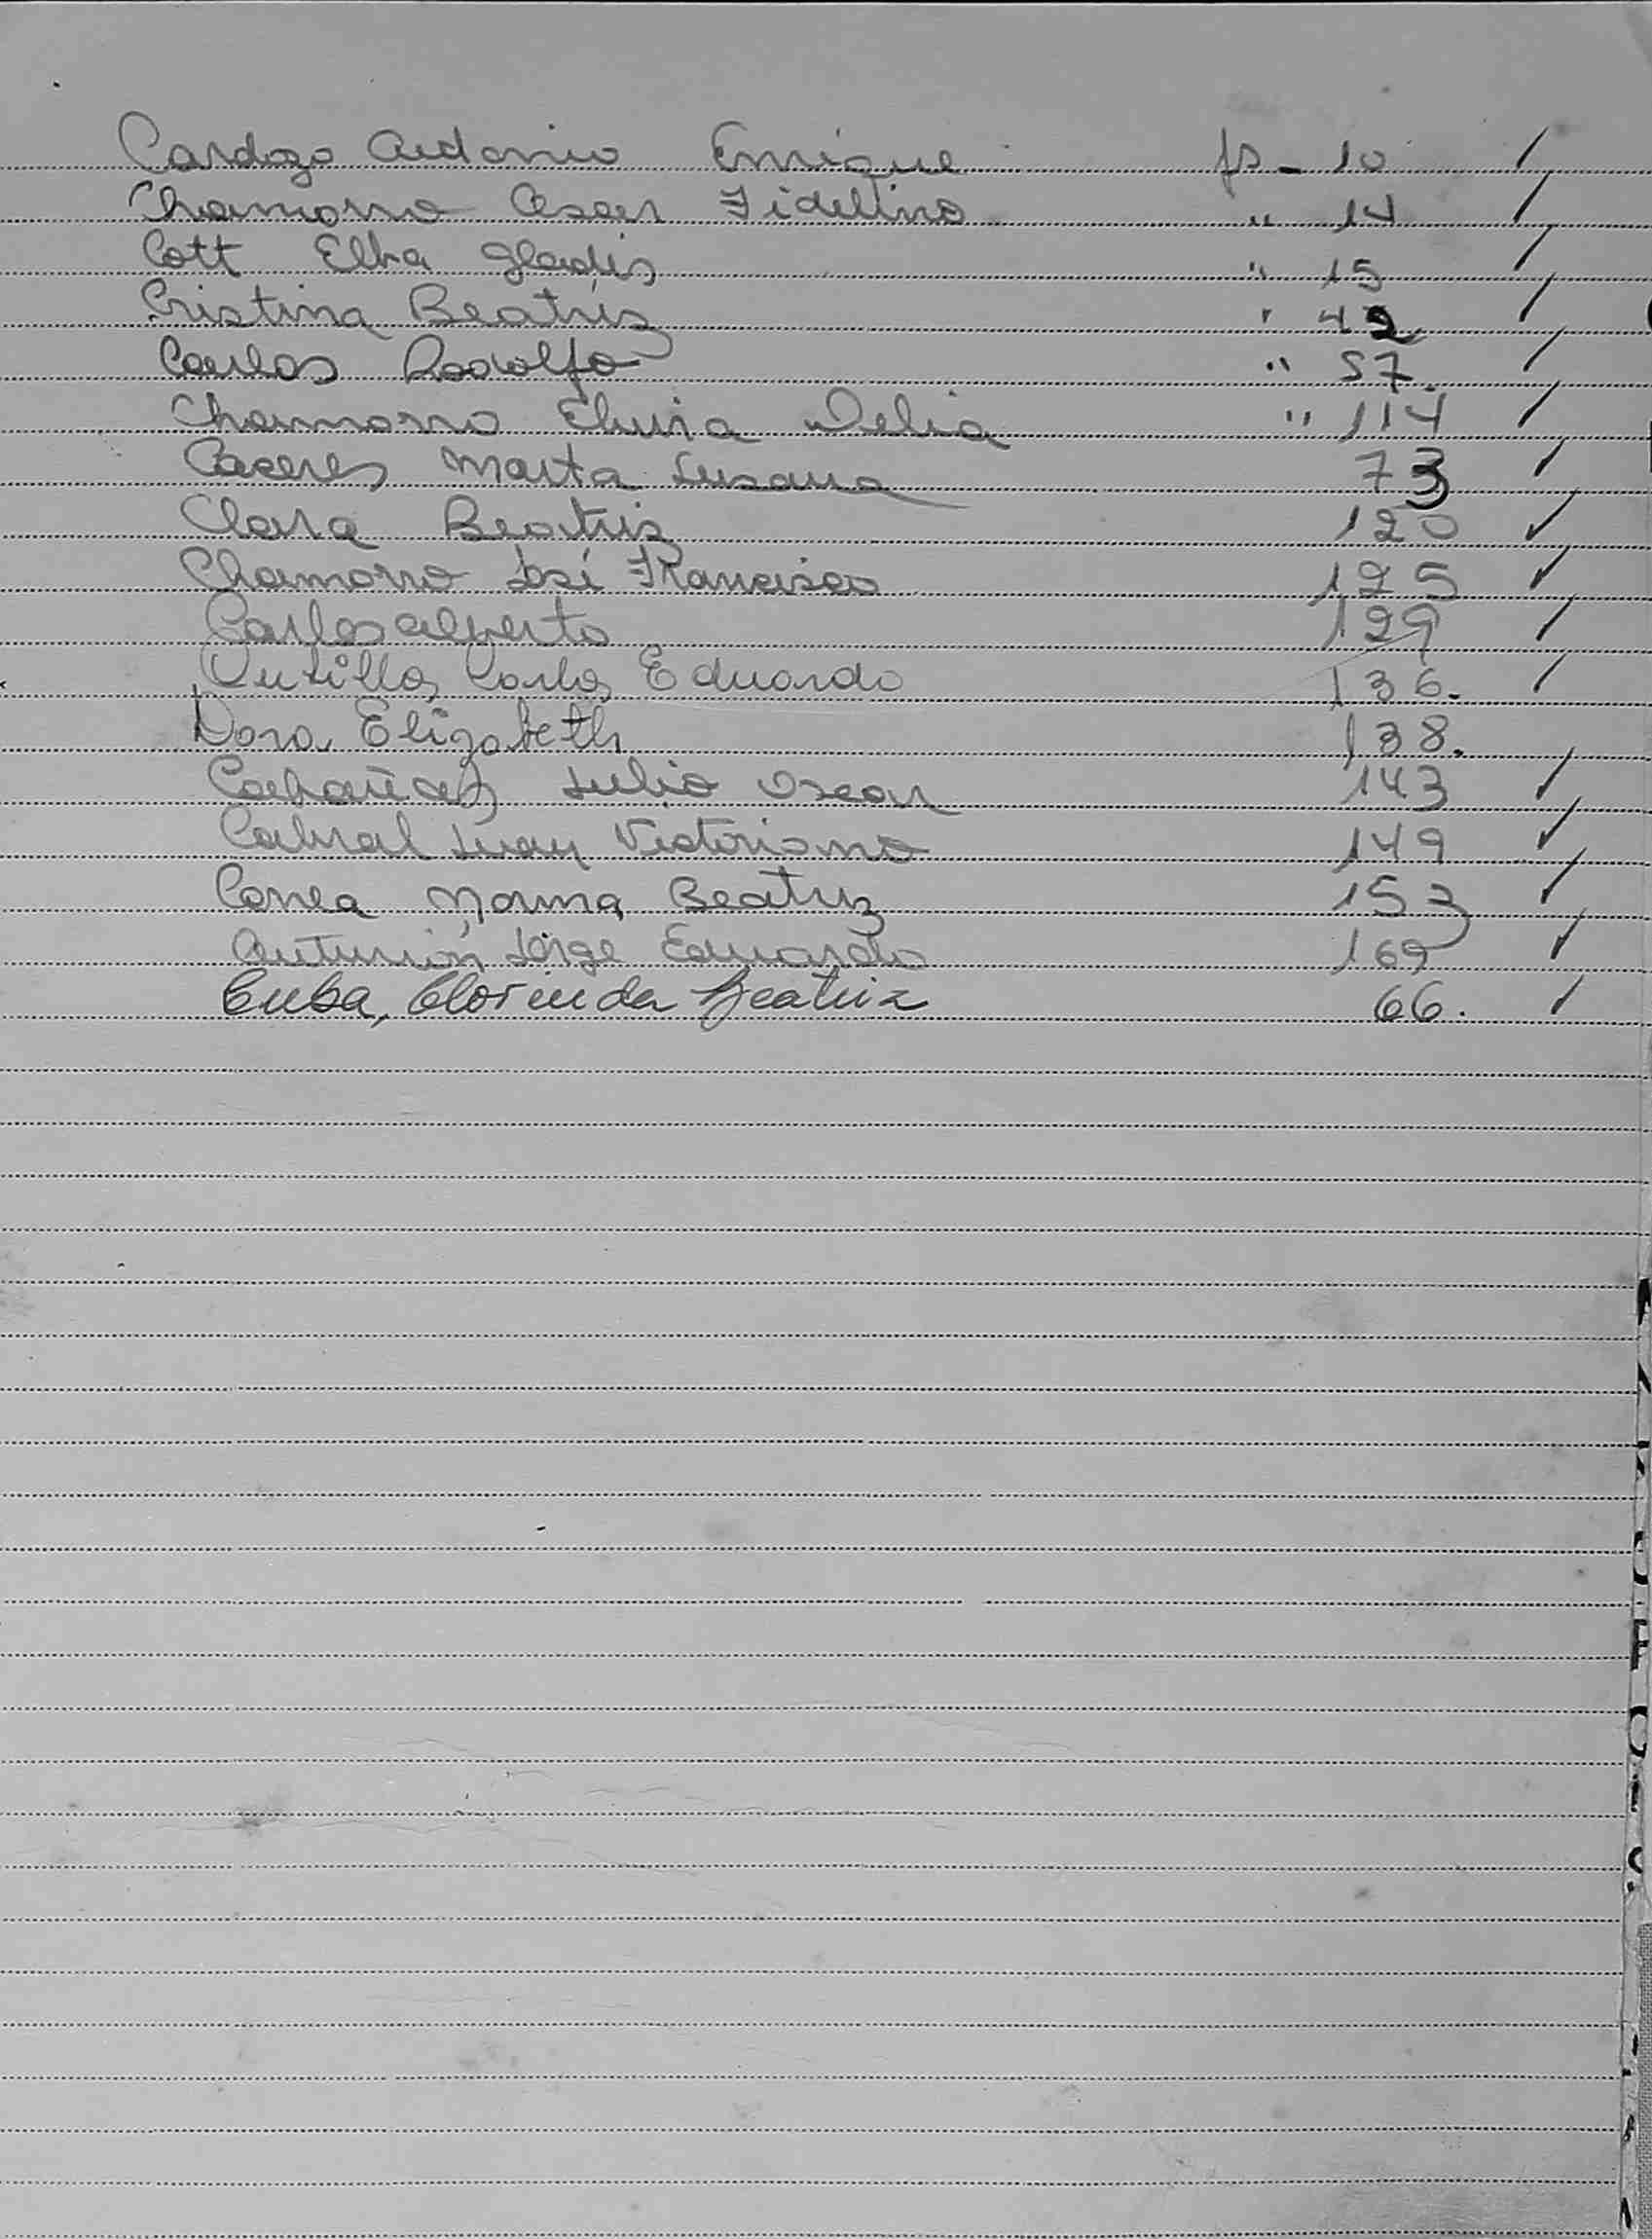 Cardozo Antonio Enrique fs - 10 /
Chamorro Oscar Fidelino " 14 /
Cott Elba Gladis " 15 /
Cristina Beatriz " 42 /
Carlos Rodolfo " 57. /
Chamorro Elvira Delia " 114 /
Caceres Marta Susana 73 /
Clara Beatriz 120 ✓
Chamorro José Francisco 125 ✓
Carlos Alberto 129 /
Carlos Eduardo 136. /
Dora Elizabeth 138.
Cabañas Julio Oscar 143 ✓
Cabral Juan Victoriano 149 ✓
Correa Norma Beatriz 153 ✓
Jorge Eduardo 169 ✓
Cuba, Clorinda Beatriz 66. /